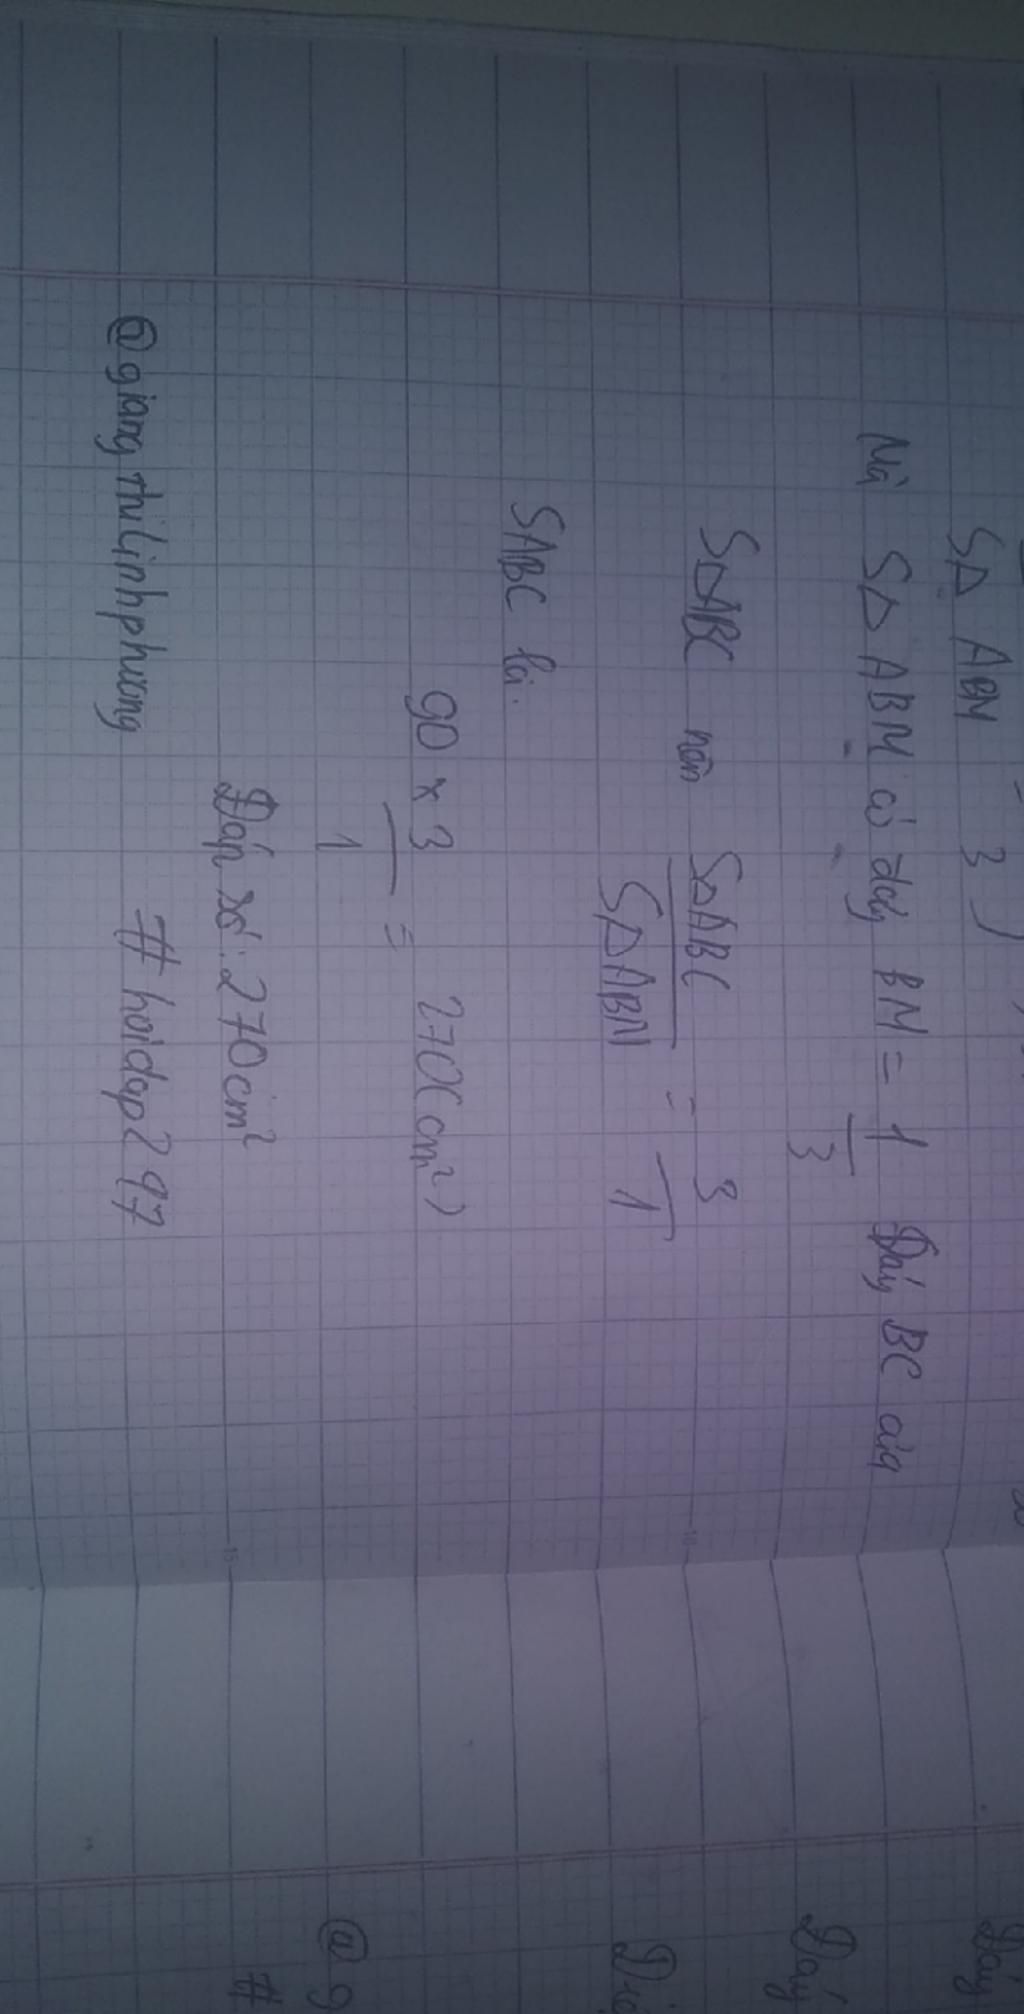 SΔ ABM = 3 )
Mà SΔ ABM có đáy BM = 1/3 Đáy BC của
SΔABC nên SΔABC/SΔABM = 3/1
SABC là:
90 x 3/1 = 270(cm²)
Đáp số: 270cm²
@giangthilinhphuong #hoidap247
Đáy
Đáy
Diệ
@g
#